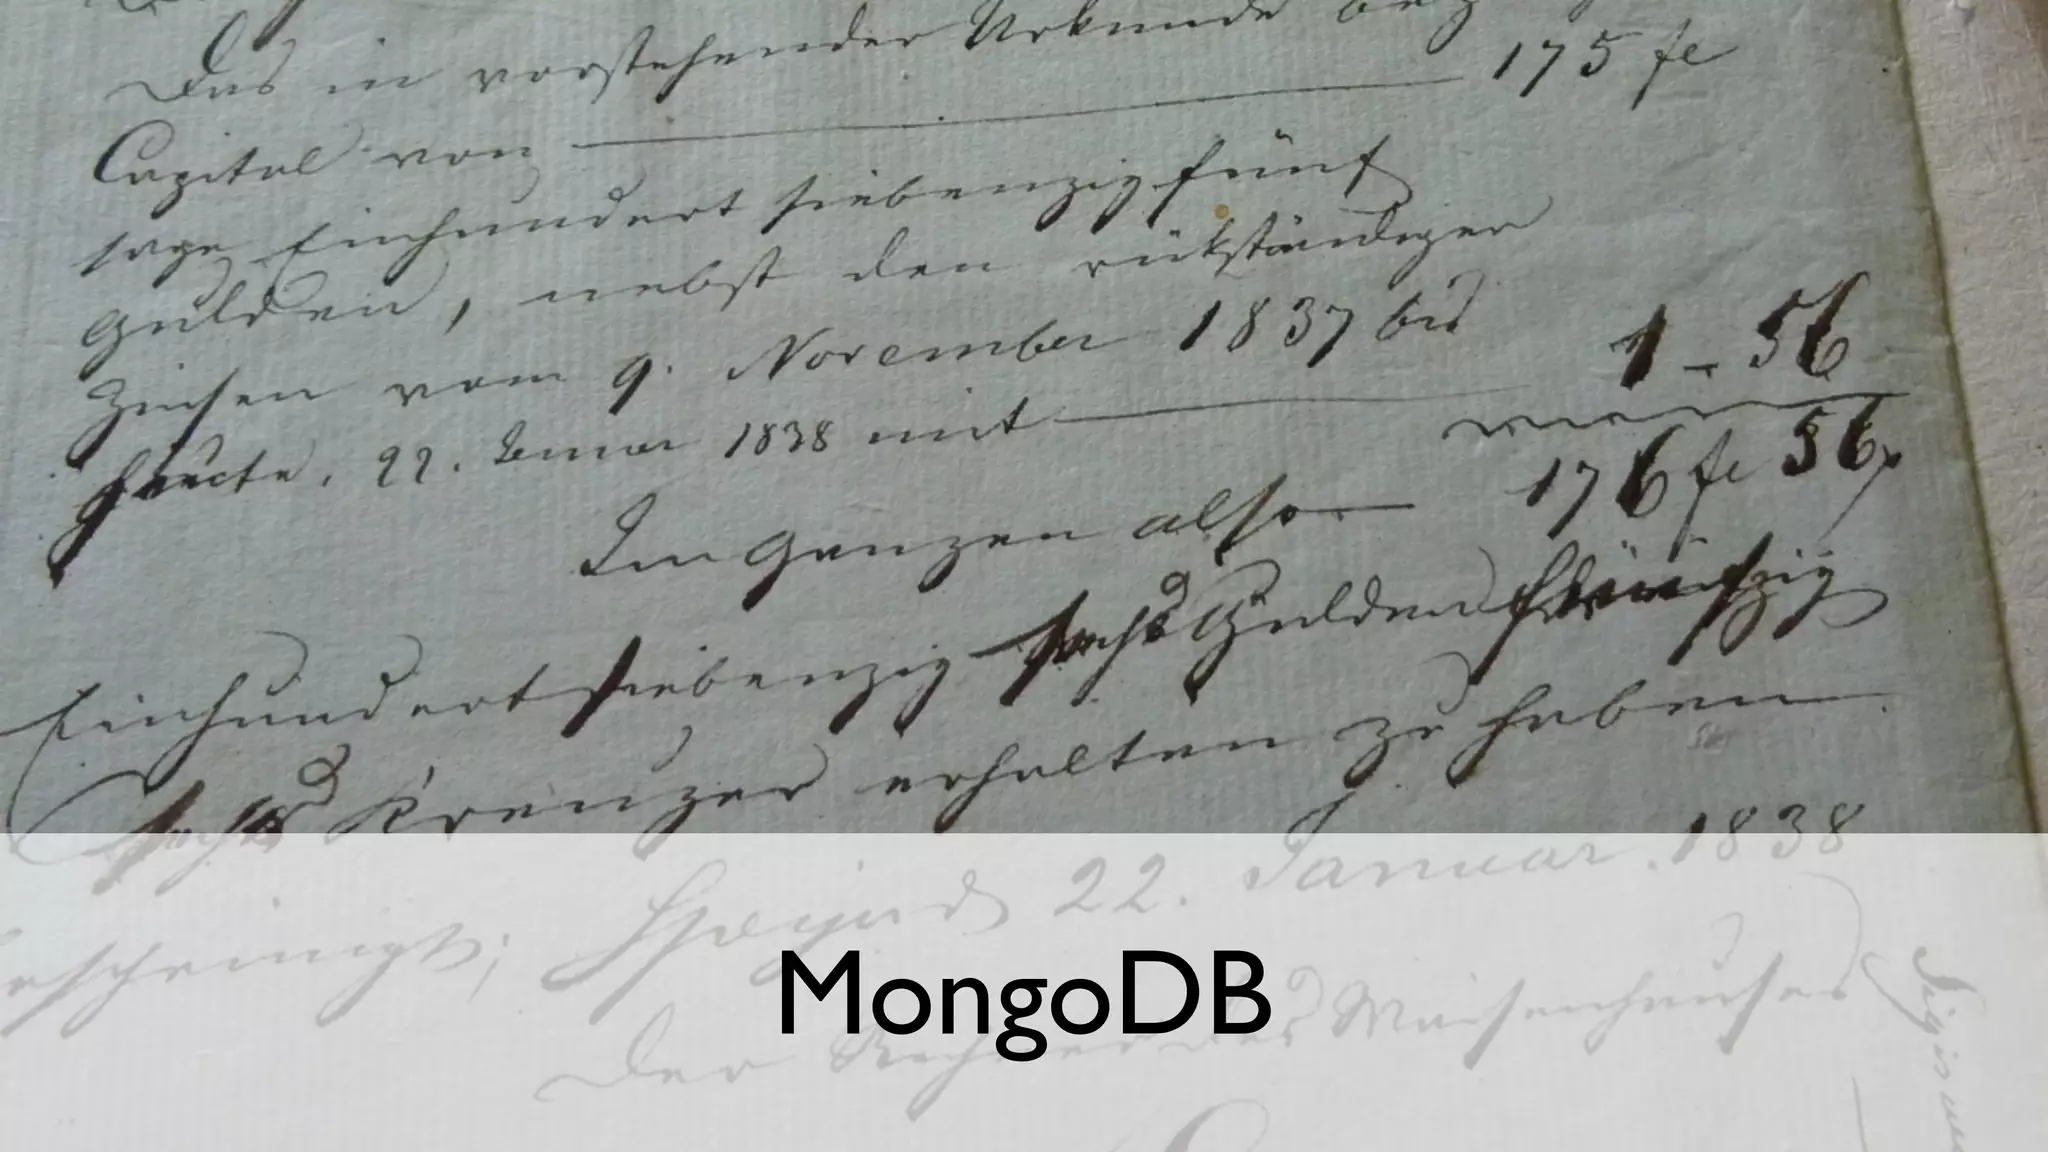 Das in vorstehender Urkunde
Capital von 175 fl
sage Einhundert siebenzig fünf
Gulden, nebst den rükständigen
Zinsen vom 9. November 1837 bis
heute, 22. Januar 1838 mit 1 - 56
176 fl 56
Im Ganzen also
Einhundert siebenzig sechs Gulden fünfzig
sechs Kreuzer erhalten zu haben
bescheinigt; 22. Januar 1838
Der Rechner des Waisenhauses
MongoDB